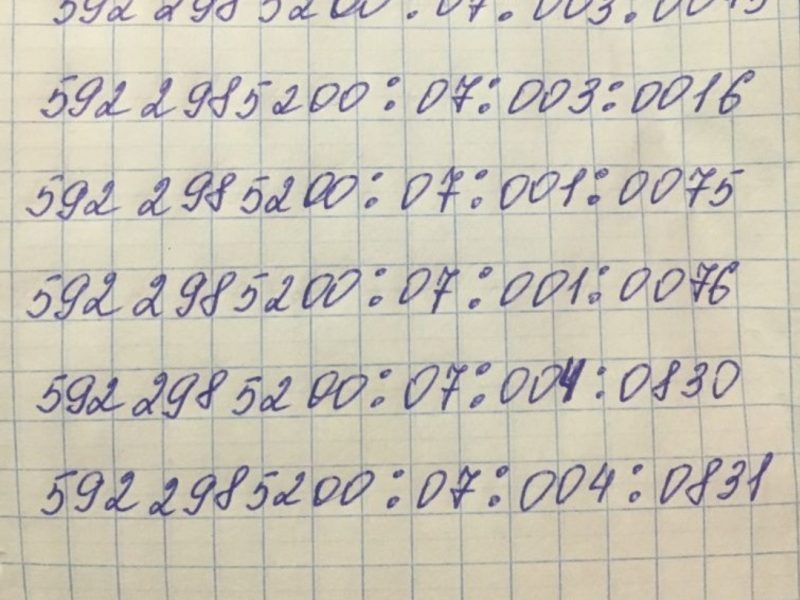 592 2985200:07:003:0016
592 2985200:07:001:0075
592 2985200:07:001:0076
592 2985200:07:004:0830
592 2985200:07:004:0831